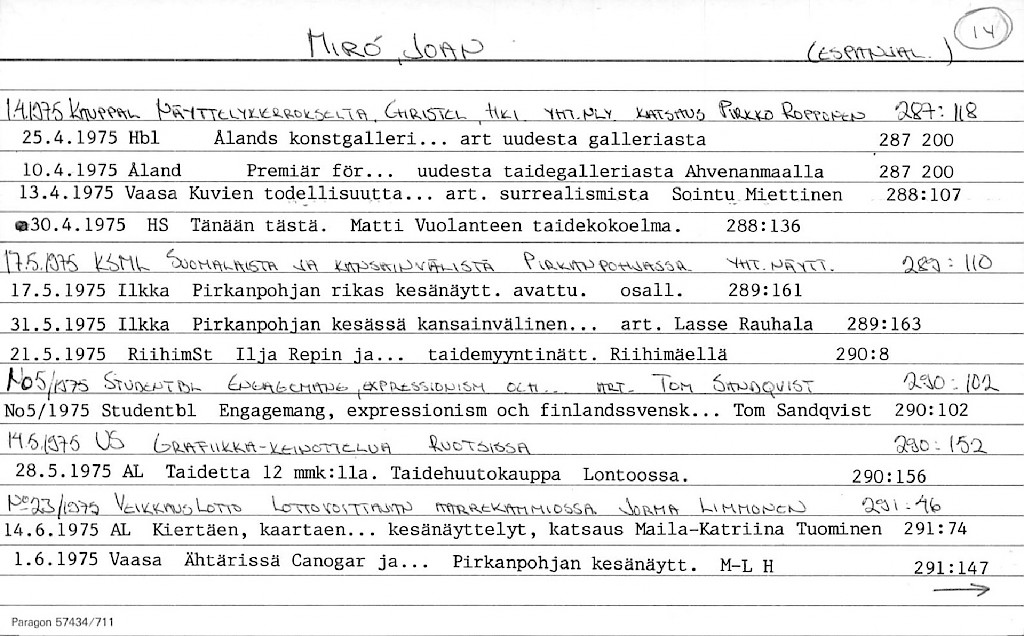 14
MIRÓ, JOAN (ESPANJAL.)
1.4.1975 KAUPPAL NÄYTTELYKERROKSELTA, CHRISTEL, HKI YHT.NLY KATSAUS PIRKKO ROPPONEN 287:118
25.4.1975 Hbl Ålands konstgalleri... art uudesta galleriasta 287 200
10.4.1975 Åland Premiär för... uudesta taidegalleriasta Ahvenanmaalla 287 200
13.4.1975 Vaasa Kuvien todellisuutta... art. surrealismista Sointu Miettinen 288:107
30.4.1975 HS Tänään tästä. Matti Vuolanteen taidekokoelma. 288:136
17.5.1975 KSML SUOMALAISTA JA KANSAINVÄLISTÄ PIRKANPOHJASSA. YHT.NÄYTT. 289:110
17.5.1975 Ilkka Pirkanpohjan rikas kesänäytt. avattu. osall. 289:161
31.5.1975 Ilkka Pirkanpohjan kesässä kansainvälinen... art. Lasse Rauhala 289:163
21.5.1975 RiihimSt Ilja Repin ja... taidemyyntinätt. Riihimäellä 290:8
No5/1975 STUDENTBL ENGAGEMANG, EXPRESSIONISM OCH... ART. TOM SANDQVIST 290:102
No5/1975 Studentbl Engagemang, expressionism och finlandssvensk... Tom Sandqvist 290:102
14.5.1975 US GRAFIIKKA-KEINOTTELUA RUOTSISSA 290:152
28.5.1975 AL Taidetta 12 mmk:lla. Taidehuutokauppa Lontoossa. 290:156
No23/1975 VEIKKAUSLOTTO LOTTOVOITTAJAN AARREKAMMIOSSA JORMA LIMMONEN 291:46
14.6.1975 AL Kiertäen, kaartaen... kesänäyttelyt, katsaus Maila-Katriina Tuominen 291:74
1.6.1975 Vaasa Ähtärissä Canogar ja... Pirkanpohjan kesänäytt. M-L H 291:147
→
Paragon 57434/711